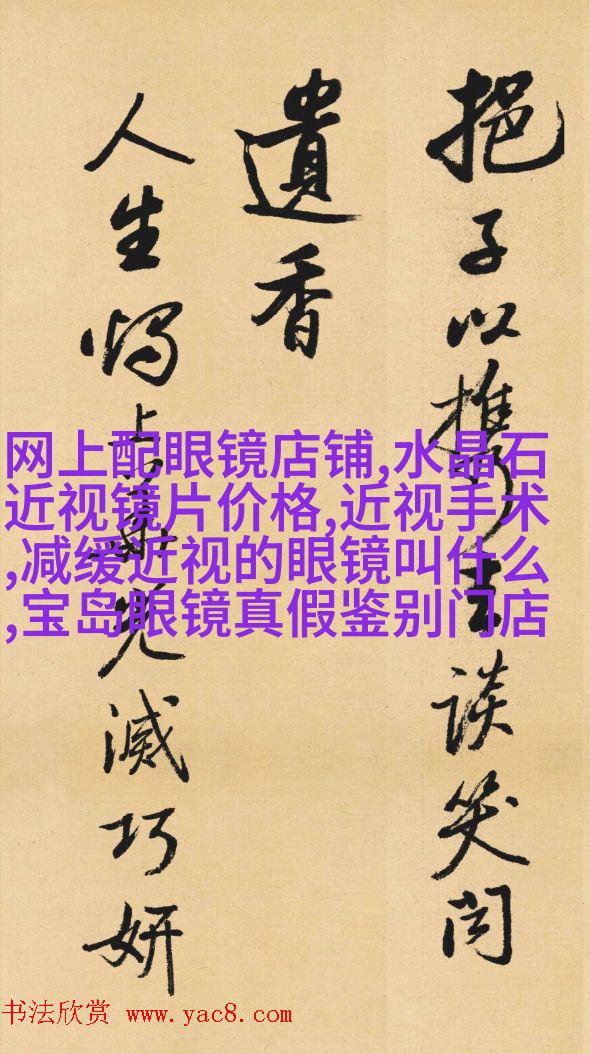 挹子以攜談笑
遺香
人生上滅巧妍
网上配眼镜店铺,水晶石
近视镜片价格,近视手术
,减缓近视的眼镜叫什么
,宝岛眼镜真假鉴别门店
书法欣赏 www.yac8.com